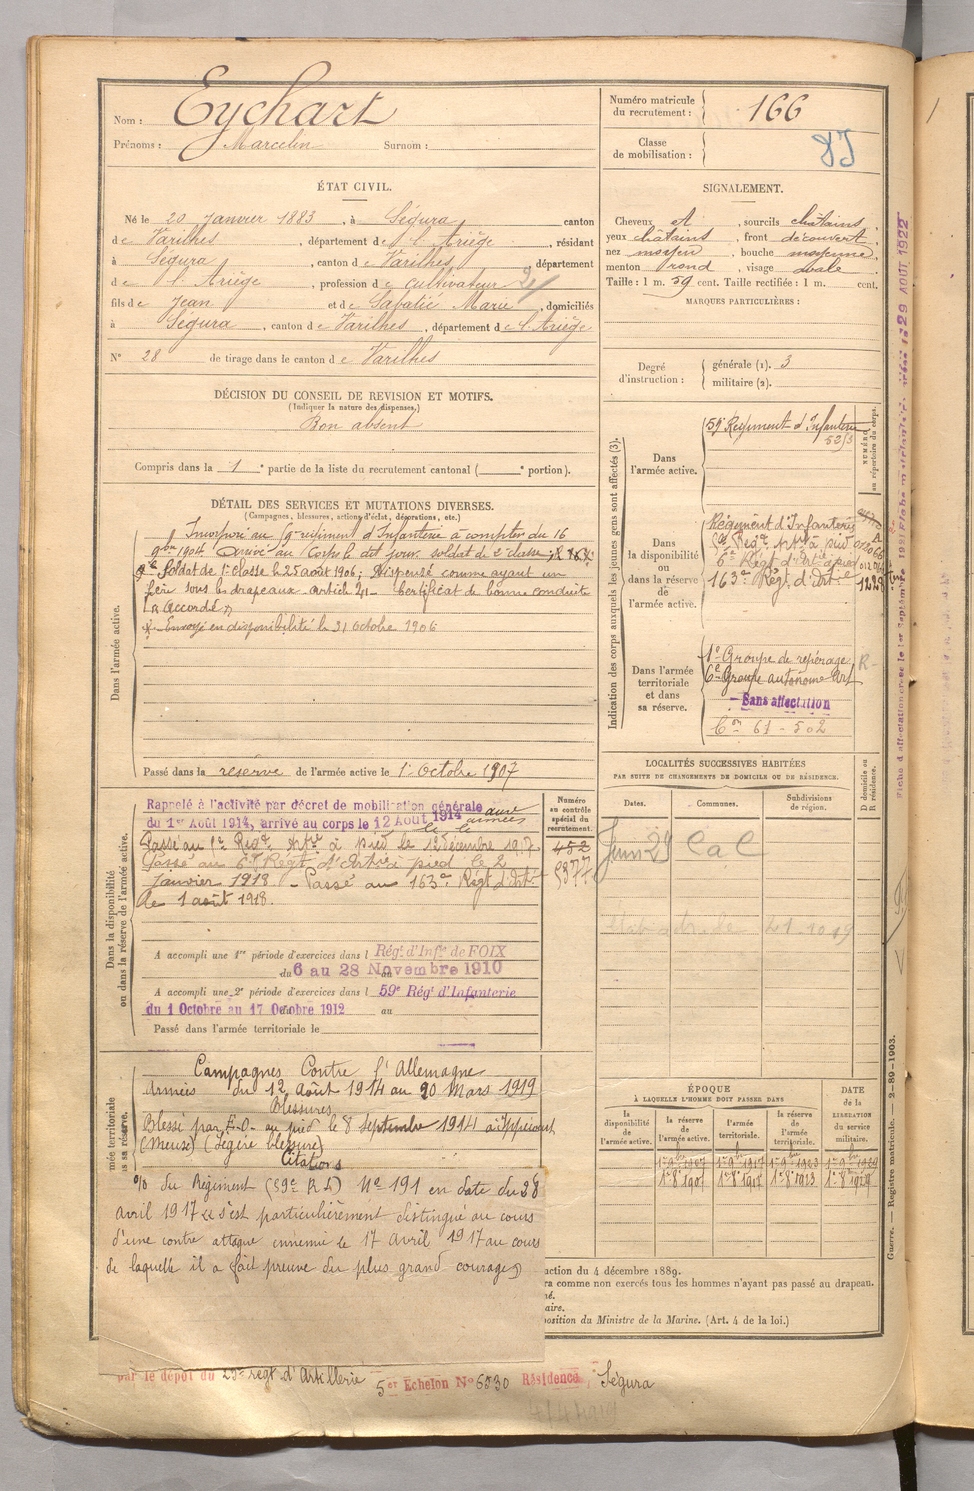 Nom : Eychart
Prénoms : Marcelin Surnom :
Numéro matricule du recrutement : 166
Classe de mobilisation :
ÉTAT CIVIL.
Né le 20 Janvier 1883, à Ségura, canton
de Varilhes, département de l'Ariège, résidant
à Ségura, canton de Varilhes, département
de l'Ariège, profession de cultivateur
fils de Jean et de Sabatié Marie, domiciliés
à Ségura, canton de Varilhes, département de l'Ariège
N° 28 de tirage dans le canton de Varilhes
SIGNALEMENT.
Cheveux et, sourcils châtains,
yeux châtains, front découvert,
nez moyen, bouche moyenne,
menton rond, visage ovale.
Taille : 1 m. 59 cent. Taille rectifiée : 1 m. cent.
MARQUES PARTICULIÈRES :
Degré d'instruction : générale (1). 3
militaire (2).
DÉCISION DU CONSEIL DE REVISION ET MOTIFS.
(Indiquer la nature des dispenses.)
Bon absent
Compris dans la 1e partie de la liste du recrutement cantonal (e portion).
DÉTAIL DES SERVICES ET MUTATIONS DIVERSES.
(Campagnes, blessures, actions d'éclat, décorations, etc.)
Dans l'armée active.
Incorporé au régiment d'Infanterie à compter du 16
9bre 1904 Arrivé au Corps le dit jour. soldat de 2e classe
Soldat de 1e classe le 25 août 1906; Dispensé comme ayant un
frère sous les drapeaux article 21 Certificat de bonne conduite
"Accordé"
Envoyé en disponibilité le 31 octobre 1906
Passé dans la réserve de l'armée active le 1 Octobre 1907
Indication des corps auxquels les jeunes gens sont affectés (3).
NUMÉRO au répertoire du corps.
Dans l'armée active.
59 Régiment d'Infanterie
Dans la disponibilité ou dans la réserve de l'armée active.
Régiment d'Infanterie
6e Régt d'Art à pied
163e Régt d'Artie
Dans l'armée territoriale et dans sa réserve.
1e Groupe de repérage
6e Groupe autonome Art
Sans affectation
61 - 502
LOCALITÉS SUCCESSIVES HABITÉES
PAR SUITE DE CHANGEMENTS DE DOMICILE OU DE RÉSIDENCE.
Dates. Communes. Subdivisions de région. D domicile ou R résidence.
Juin 29 CaC
21.10.19
Dans la disponibilité ou dans la réserve de l'armée active.
Numéro au contrôle spécial du recrutement.
Rappelé à l'activité par décret de mobilisation générale
du 1er Août 1914, arrivé au corps le 12 Août 1914 aux armées
Passé au 1e Régt Artie à pied le 12 décembre 1917
Passé au 6e Régt d'Artie à pied le 2
janvier 1918 - Passé au 163e Régt d'Artie
le 1 août 1918.
452
A accompli une 1re période d'exercices dans l Régt d'Infie de FOIX
du 6 au 28 Novembre 1910
A accompli une 2e période d'exercices dans l 59e Régt d'Infanterie
du 1 Octobre au 17 Octobre 1912 au
Passé dans l'armée territoriale le
Campagnes Contre l'Allemagne
Armées du 12 Août 1914 au 20 Mars 1919
Blessures
Blessé par E.O. au pied le 8 septembre 1914 à
(Meuse) (Légère blessure)
Citations
O/ du Régiment (59e R I) N° 191 en date du 28
avril 1917 "s'est particulièrement distingué au cours
d'une contre attaque ennemie le 17 avril 1917 au cours
de laquelle il a fait preuve du plus grand courage"
ÉPOQUE
À LAQUELLE L'HOMME DOIT PASSER DANS
la disponibilité de l'armée active. la réserve de l'armée active. l'armée territoriale. la réserve de l'armée territoriale. DATE de la LIBÉRATION DU service militaire.
ction du 4 décembre 1889.
ra comme non exercés tous les hommes n'ayant pas passé au drapeau.
né.
aire.
position du Ministre de la Marine. (Art. 4 de la loi.)
par le dépôt du régt d'Artillerie
5er Echelon N° 6530 Résidence Ségura
Guerre. — Registre matricule. — 2-89-1903.